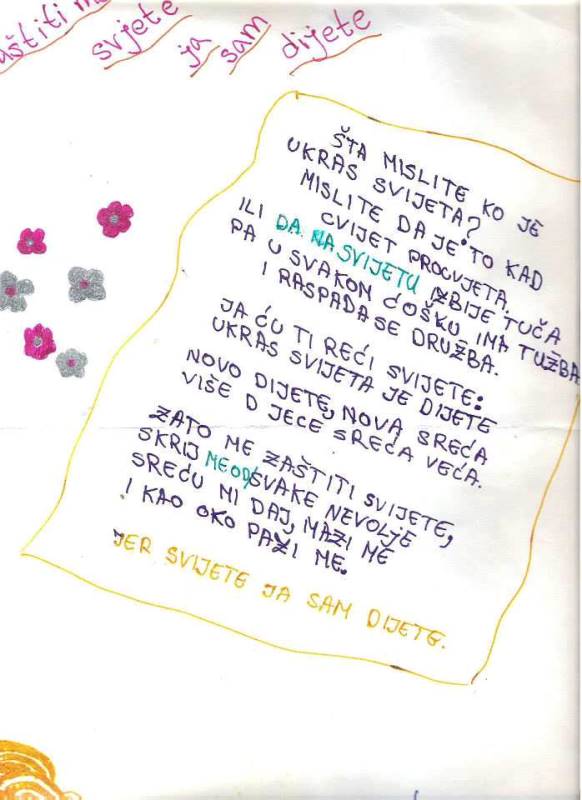 aštiti me
svjete
ja
sam
dijete
ŠTA MISLITE KO JE
UKRAS SVIJETA?
MISLITE DA JE TO KAD
CVIJET PROCVJETA,
ILI DA NA SVIJETU IZBIJE TUČA
PA U SVAKON ĆOŠKU IMA TUŽBA
I RASPADA SE DRUŽBA.
JA ĆU TI REĆI SVIJETE:
UKRAS SVIJETA JE DIJETE
NOVO DIJETE, NOVA SREĆA
VIŠE DJECE SREĆA VEĆA.
ZATO ME ZAŠTITI SVIJETE,
SKRIJ ME OD SVAKE NEVOLJE
SREĆU MI DAJ, MAZI ME
I KAO OKO PAZI ME.
JER SVIJETE JA SAM DIJETE.